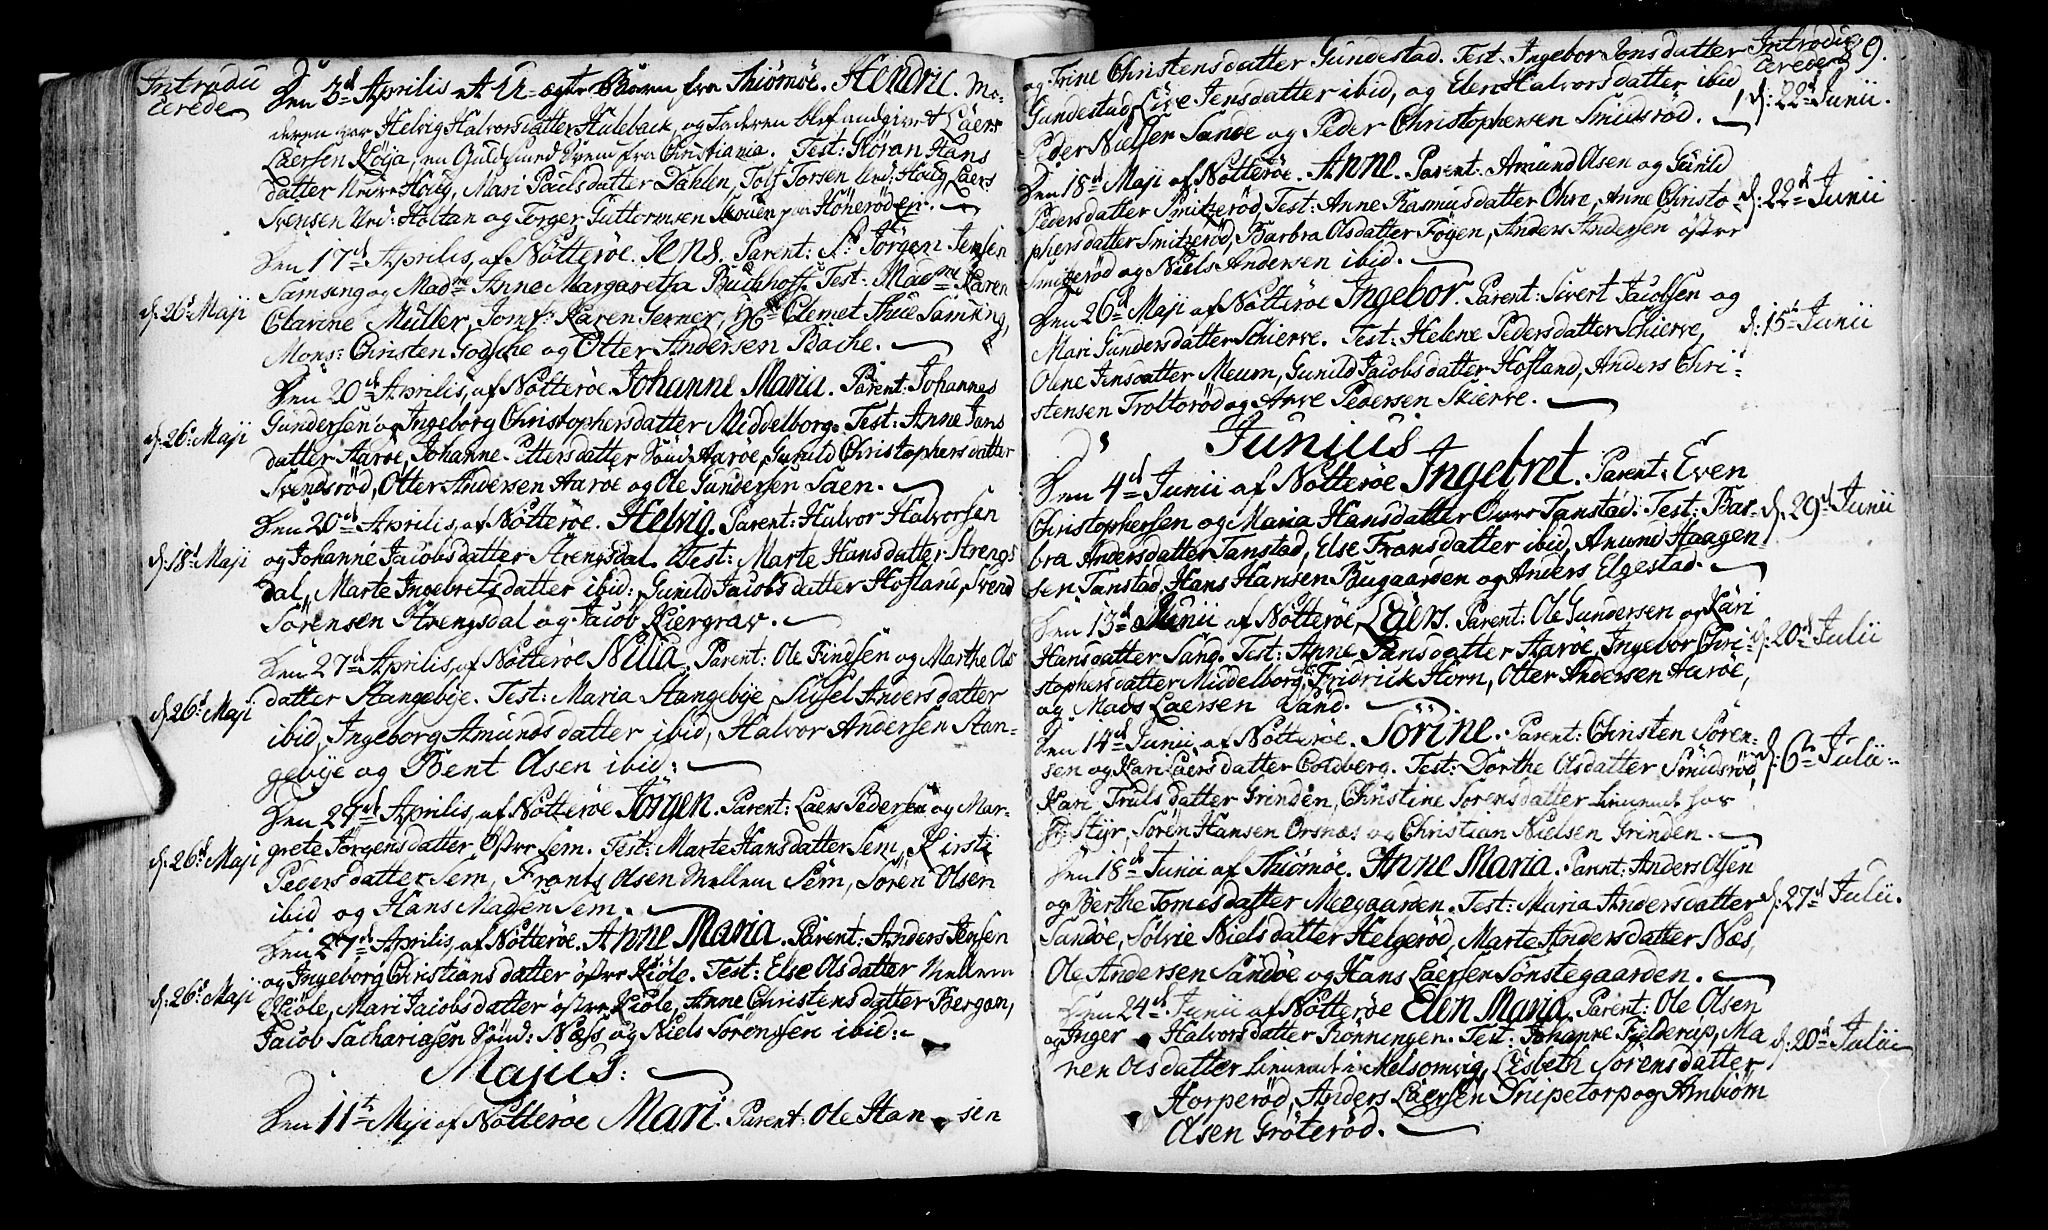 Introdu
cerede
Den 3d Aprilis Et U-ægte Barn fra Thiömöe. Hendric. Mo-
deren var Helvig Halvorsdatter Huleback og Faderen blef angivet Laers
Laersen Röya, en Guldsmed Svend fra Christiania. Test: Göran Hans
datter Nedre Houg, Mari Paulsdatter Dahlen, Tolf Torsen Ned: Houg Laers
Svensen Ned: Holtan og Torger Guttormsen Skouen paa Hönerödeje.
Den 17d Aprilis, af Nötteröe. Jens. Parent: Sr Jörgen Jensen
Samsing og Madme Anne Margaretha Buchhoff. Test: Madme Karen
d: 26d Maji
Clarine Müller, Jomf: Karen Ferner, Hr Clemet Thue Samsing,
Mons: Christen Godsche og Otter Andersen Bache.
Den 20d Aprilis, af Nötteröe Johanne Maria. Parent: Johannes
Gundersen og Ingeborg Christophersdatter Middelborg. Test: Anne Jans
d: 26d Maji
datter Aaröe, Johanne Pettersdatter Sönd: Aaröe, Gunild Christophersdatter
Svendsröd, Otter Andersen Aaröe og Ole Gundersen Saen.
Den 20d Aprilis, af Nötteröe. Helvig. Parent: Halvor Halvorsen
d: 18d Maji
og Johanne Jacobsdatter Strengsdal. Test: Marte Hansdatter Strengs
dal, Marte Ingebretsdatter ibid: Gunild Jacobsdatter Hofland, Svend
Sörensen Strengsdal og Jacob Kiergrav.
Den 27d Aprilis, af Nötteröe Nilia. Parent: Ole Findsen og Marthe Ols
datter Stangebye. Test: Maria Stangebye, Sissel Andersdatter
d: 26d Maji
ibid, Ingeborg Amundsdatter ibid, Halvor Andersen Stan-
gebye og Bent Olsen ibid:
Den 27d Aprilis, af Nötteröe Jörgen. Parent: Laers Pedersen og Mar-
grete Jörgensdatter Östre Sem. Test: Marte Hansdatter Sem, Kirsti
d: 26d Maji
Pedersdatter Sem, Frants Olsen Mellem Sem, Sören Olsen
ibid og Hans Madsen Sem.
Den 27d Aprilis, af Nötteröe. Anne Maria. Parent: Anders Jensen
og Ingeborg Christiansdatter östre Kiöle. Test: Else Olsdatter Mellem
d: 26d Maji
Kiöle, Mari Jacobsdatter östre Kiöle, Anne Christensdatter Bergan,
Jacob Sachariasen Sönd: Næss og Niels Sörenssen ibid:
Majus:
Den 11te Maji af Nötteröe Mari. Parent: Ole Han sen
Introdu
cerede
89.
og Trine Christensdatter Gundestad. Test: Ingebor Jonsdatter
Gundestad, Live Jensdatter ibid, og Elen Halvorsdatter ibid,
d: 22d Junii.
Peder Nielsen Sande og Peder Christophersen Smidsröd.
Den 18d Maji af Nötteröe. Anne. Parent: Amund Olsen og Gunild
Pedersdatter Smitzeröd, Test: Anne Rasmusdatter Ohre, Anne Christo-
d: 22d Junii
phersdatter Smitzeröd, Barbra Olsdatter Föyen, Anders Andersen östre
Smitzeröd og Niels Andersen ibid.
Den 26d Maji af Nötteröe Ingebor. Parent: Sivert Jacobsen og
d: 15d Junii
Mari Gundersdatter Schierve. Test: Helene Pedersdatter Schierve,
Olene Jensdatter Meum, Gunild Jacobsdatter Hofland, Anders Chri-
stensen Troltröd og Arve Pedersen Skierve.
Junius
Den 4d Junii af Nötteröe Ingebret. Parent: Even
Christophersen og Maria Hansdatter Övre Tanstad: Test: Bar-
d: 29d Junii
bra Andersdatter Tanstad, Else Fransdatter ibid, Amund Haagen-
sen Tanstad, Hans Hansen Bugaarden og Anders Elgestad.
Den 13d Junii af Nötteröe, Laers. Parent: Ole Gundersen og Kari
Hansdatter Sand. Test: Anne Jansdatter Aaröe, Ingebor Chri-
d: 20d Julii
stophersdatter Middelborg: Fridrick Horn, Otter Andersen Aaröe,
og Mads Laersen Sand.
Den 14d Junii, af Nötteröe. Sörine. Parent: Christen Sören-
sen og Kari Laersdatter Coldberg. Test: Dorthe Olsdatter Smidsröd,
d: 6te Julii.
Kari Trulsdatter Grinden, Christine Sörensdatter tienende hos
Hr Styr, Sören Hansen Orsnæs og Christian Nielsen Grinden.
Den 18d Junii af Thiömöe. Anne Maria. Parent: Anders Olsen
og Berthe Tomesdatter Meegaarden. Test: Maria Andersdatter
d: 27d Julii.
Sandöe, Sölvie Nielsdatter Helgeröd, Marte Andersdatter Næs,
Ole Andersen Sandöe og Hans Laersen Sönstegaarden.
Den 24d Junii af Nötteröe Elen Maria. Parent: Ole Olsen
og Inger Halvorsdatter Rönningen. Test: Johanne Fielderup, Ma
d: 20d Julii
ren Olsdatter tienende i Melsomvig, Lisbeth Sörensdatter
Horperöd, Anders Laersen Knipetorp og Arnbiörn
Olsen Gröteröd.